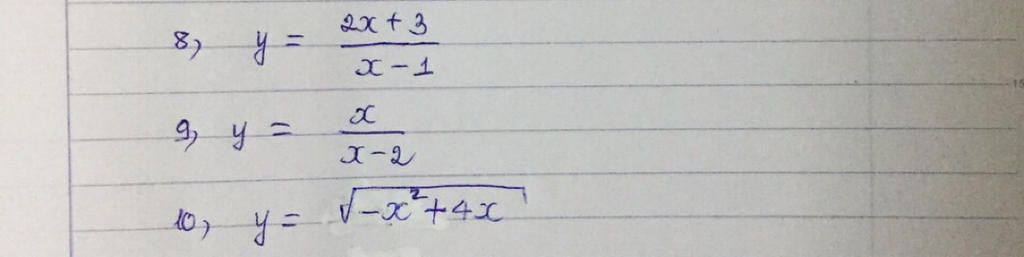 8, y = (2x + 3)/(x - 1)
9, y = x/(x - 2)
10, y = √(-x² + 4x)